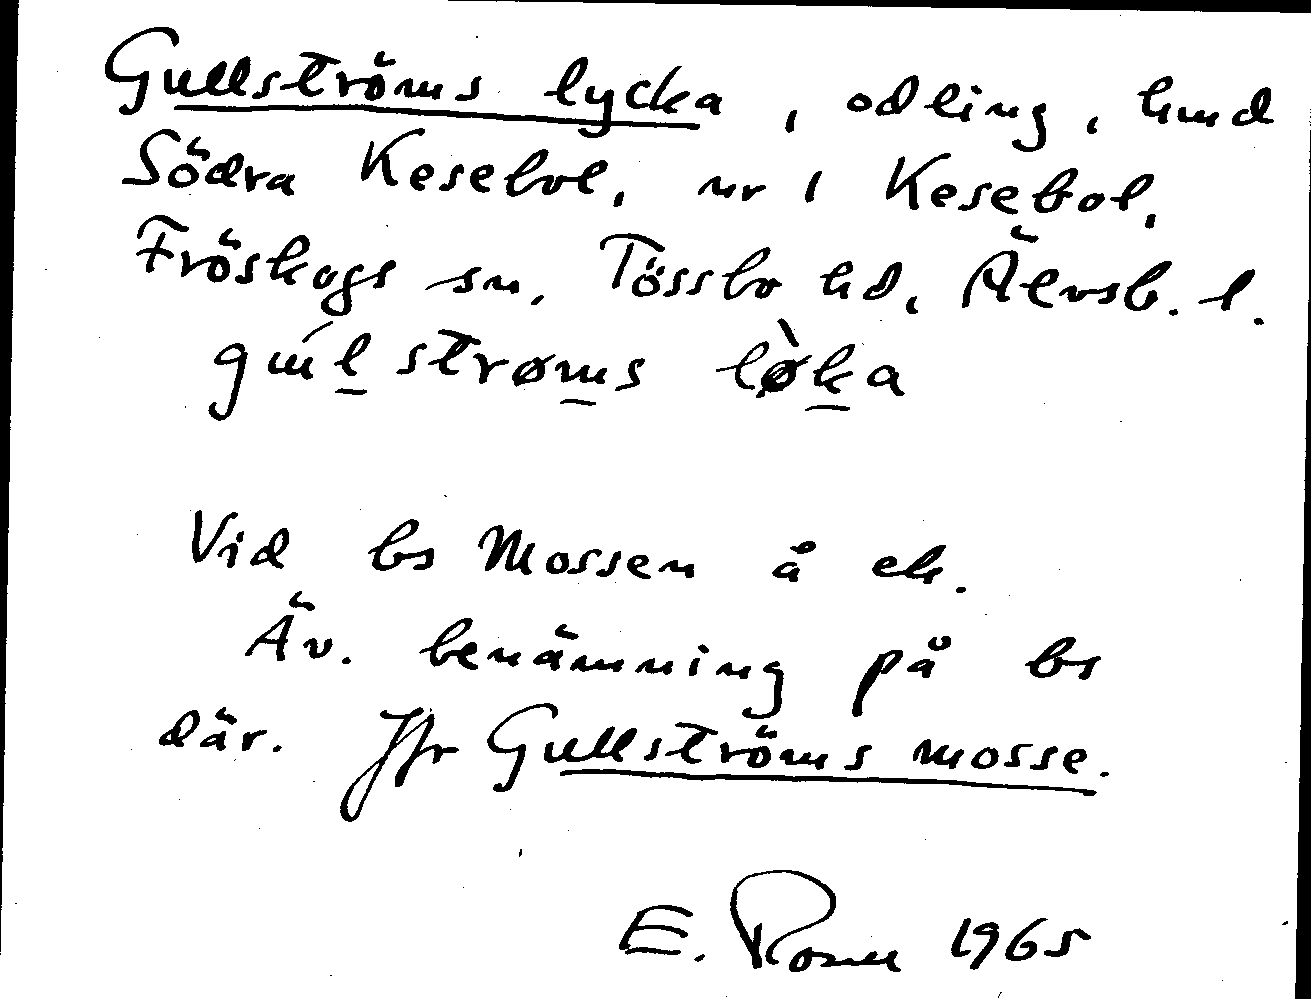 Gullströms lycka, odling, hmd
Södra Kesebol, nr 1 Kesebol,
Fröskogs sn, Tössbo hd, Älvsb. l.
gúl̲strøm̲s lø̀k̲a
Vid bs Mossen å ek.
Äv. benämning på bs
där. Jfr Gullströms mosse.
E. Rosell 1965